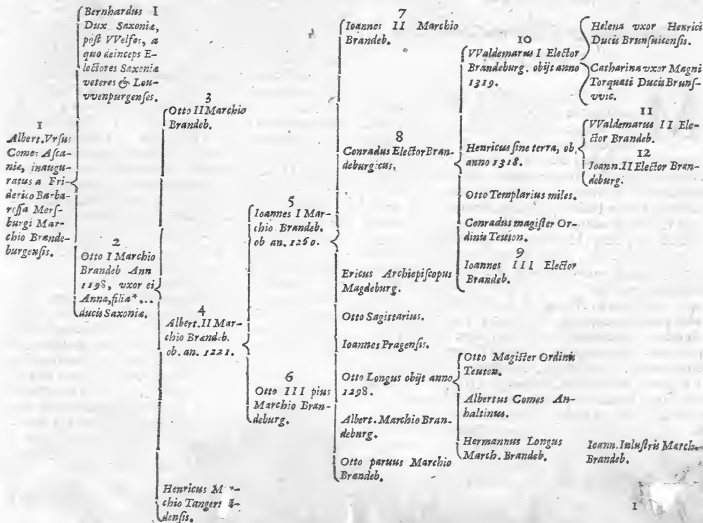 1
Albert. Vrſus
Comes Aſca-
niæ, inaugu-
ratus a Fri-
derico Barba-
roſſa Merſ-
burgi Mar-
chio Brande-
burgenſis.
Bernhardus I
Dux Saxoniæ,
poſt VVelfos, a
quo deinceps E-
lectores Saxoniæ
veteres & Lou-
vvenpurgenſes.
2
Otto I Marchio
Brandeb Ann
1198, vxor ei
Anna, filia *...
ducis Saxoniæ.
3
Otto II Marchio
Brandeb.
4
Albert. II Mar-
chio Brandeb.
ob. an. 1221.
Henricus M
chio Tangert
denſis.
5
Ioannes I Mar-
chio Brandeb.
ob an. 1260.
6
Otto III pius
Marchio Bran-
deburg.
7
Ioannes II Marchio
Brandeb.
8
Conradus Elector Bran-
deburgicus.
Ericus Archiepiſcopus
Magdeburg.
Otto Sagittarius.
Ioannes Pragenſis.
Otto Longus obijt anno
1298.
Albert. Marchio Bran-
deburg.
Otto paruus Marchio
Brandeb.
10
VValdemarus I Elector
Brandeburg. obijt anno
1319.
Henricus ſine terra, ob.
anno 1318.
Otto Templarius miles.
Conradus magiſter Or-
dinis Teuton.
9
Ioannes III Elector
Brandeb.
Otto Magiſter Ordinis
Teuton.
Albertus Comes An-
haltinus.
Hermannus Longus
March. Brandeb.
Helena vxor Henrici
Ducis Brunſuicenſis.
Catharina vxor Magni
Torquati Ducis Brunſ-
vvic.
11
VValdemarus II Ele-
ctor Brandeb.
12
Ioann. II Elector Bran-
deburg.
Ioann. Inluſtris March.
Brandeb.
1